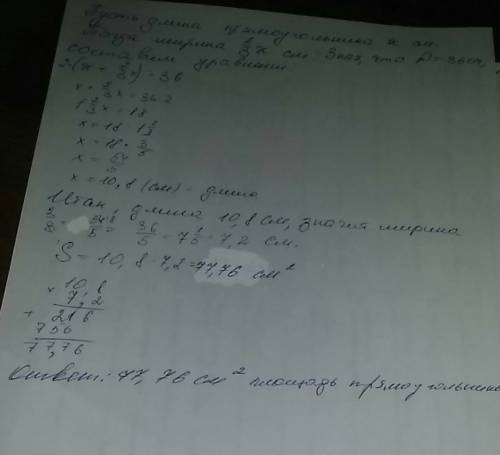 Пусть длина прямоугольника x см.
Тогда ширина 2/3x см. Зная, что P=36см,
составим уравнение
2(x+2/3x)=36
x+2/3x=36:2
1 2/3x=18
x=18:1 2/3
x=18·3/5
x=54/5
x=10,8(см)-длина
Итак, длина 10,8см, значит ширина
36/5=7 1/5=7,2 см.
S=10,8·7,2=77,76 см²
×10,8
7,2
+216
756
77,76
Ответ: 77,76см² площадь прямоугольника